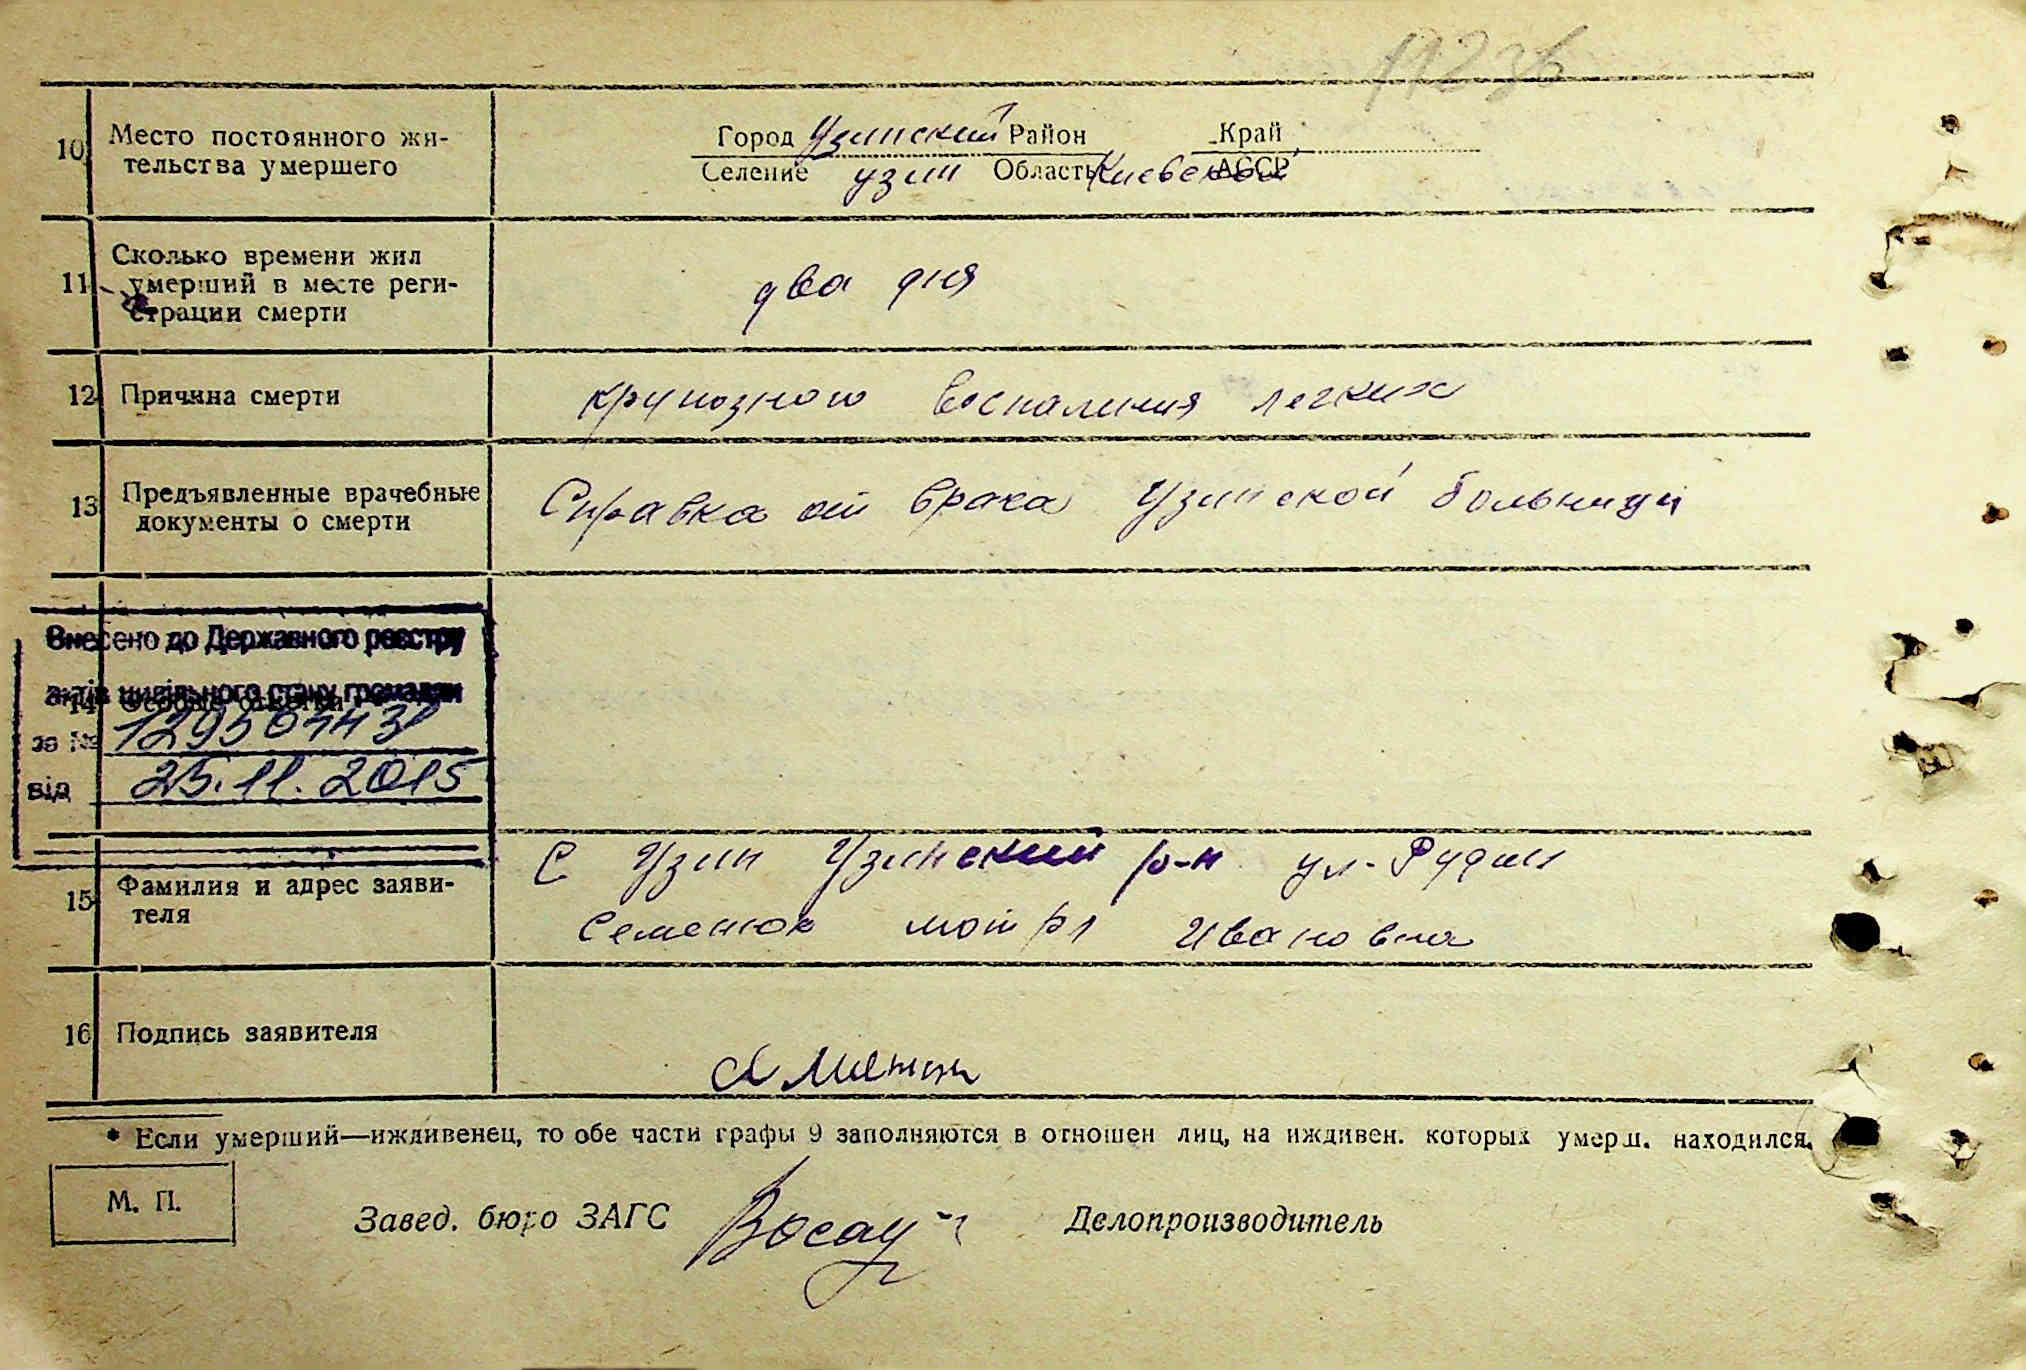 10 Место постоянного жи-
тельства умершего
Город Узинский Район Край
Селение Узин Область Киевской АССР
11 Сколько времени жил
умерший в месте реги-
страции смерти
два дня
12 Причина смерти
крупозного воспаления легких
13 Предъявленные врачебные
документы о смерти
Справка от врача Узинской больници
Внесено до Державного реєстру
актів цивільного стану громадян
14 Особые отметки
за №
від 25.11.2015
15 Фамилия и адрес заяви-
теля
С Узин Узинский р-н ул-
Семенюк Ивановна
16 Подпись заявителя
* Если умерший—иждивенец, то обе части графы 9 заполняются в отношен лиц, на иждивен. которых умерш. находился.
М. П.
Завед. бюро ЗАГС Делопроизводитель